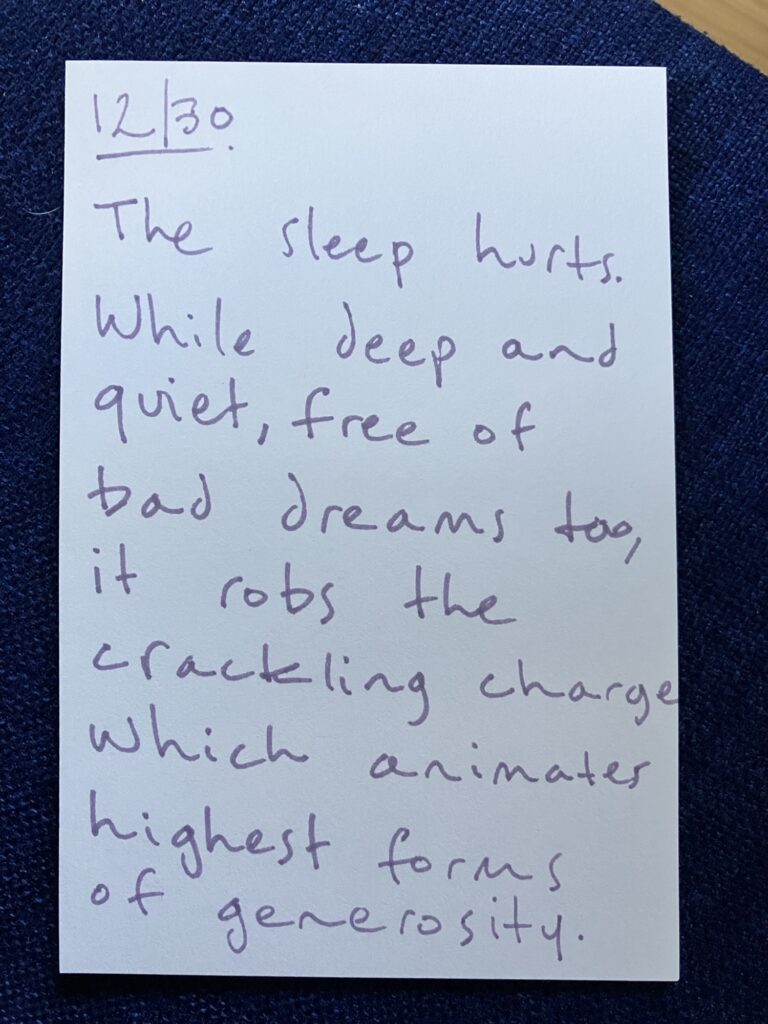 12/30.
The sleep hurts.
While deep and
quiet, free of
bad dreams too,
it robs the
crackling charge
which animates
highest forms
of generosity.